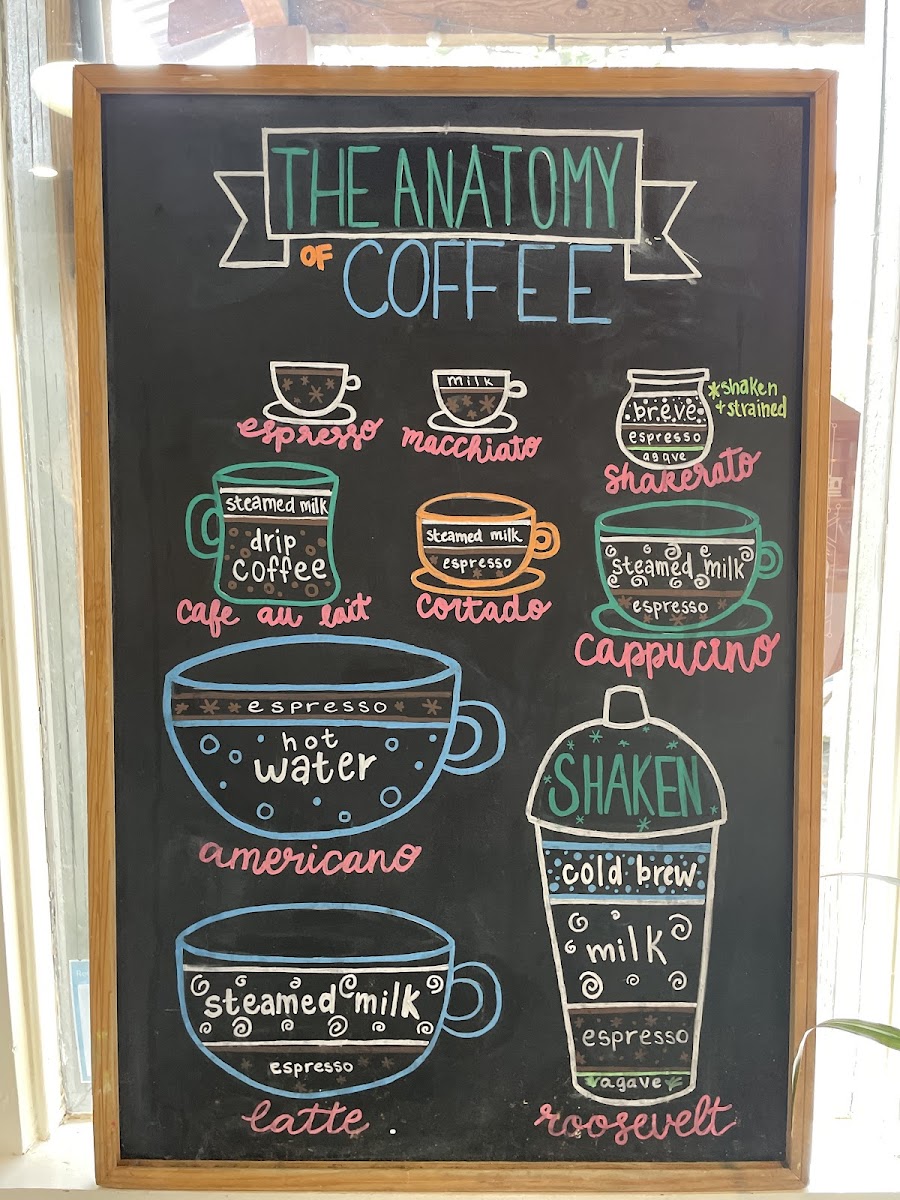 THE ANATOMY
OF COFFEE
espresso
milk
macchiato
breve
espresso
agave
*shaken
+ strained
shakerato
steamed milk
drip
coffee
cafe au lait
steamed milk
espresso
cortado
steamed milk
espresso
cappucino
espresso
hot
water
americano
SHAKEN
cold brew
milk
espresso
agave
roosevelt
steamed milk
espresso
latte.